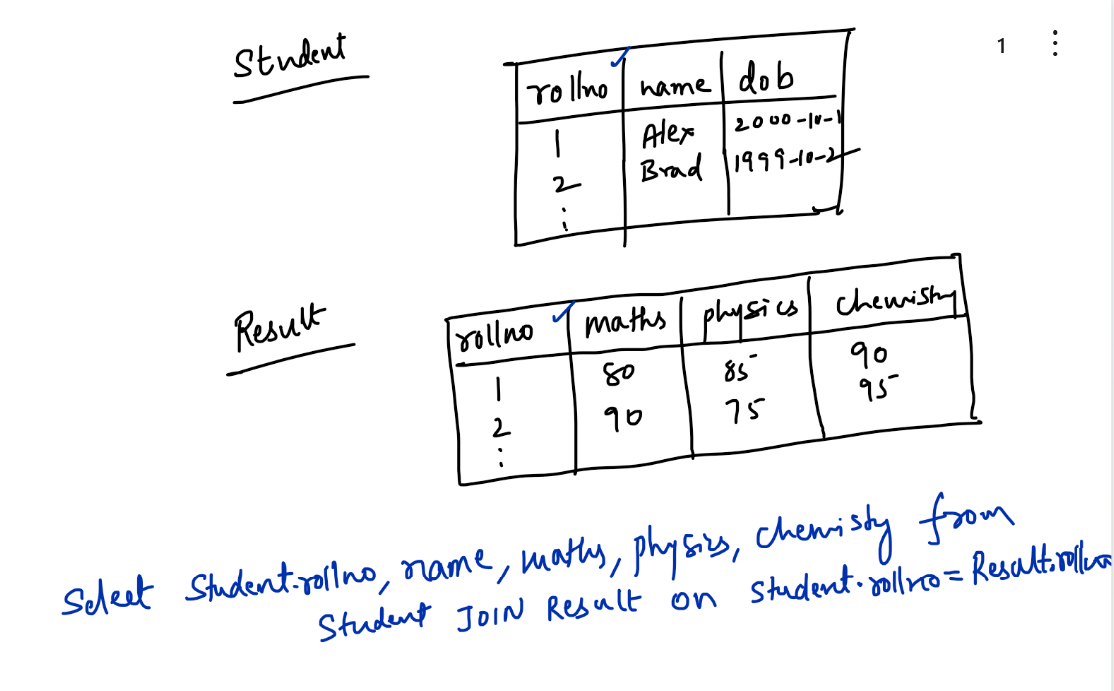 Student
1
rollno name dob
1 Alex 2000-10-1
2 Brad 1999-10-2
Result
rollno maths physics chemistry
1 80 85 90
2 90 75 95
Select Student.rollno, name, maths, physics, chemisty from
Student JOIN Result on Student.rollno = Result.rollno